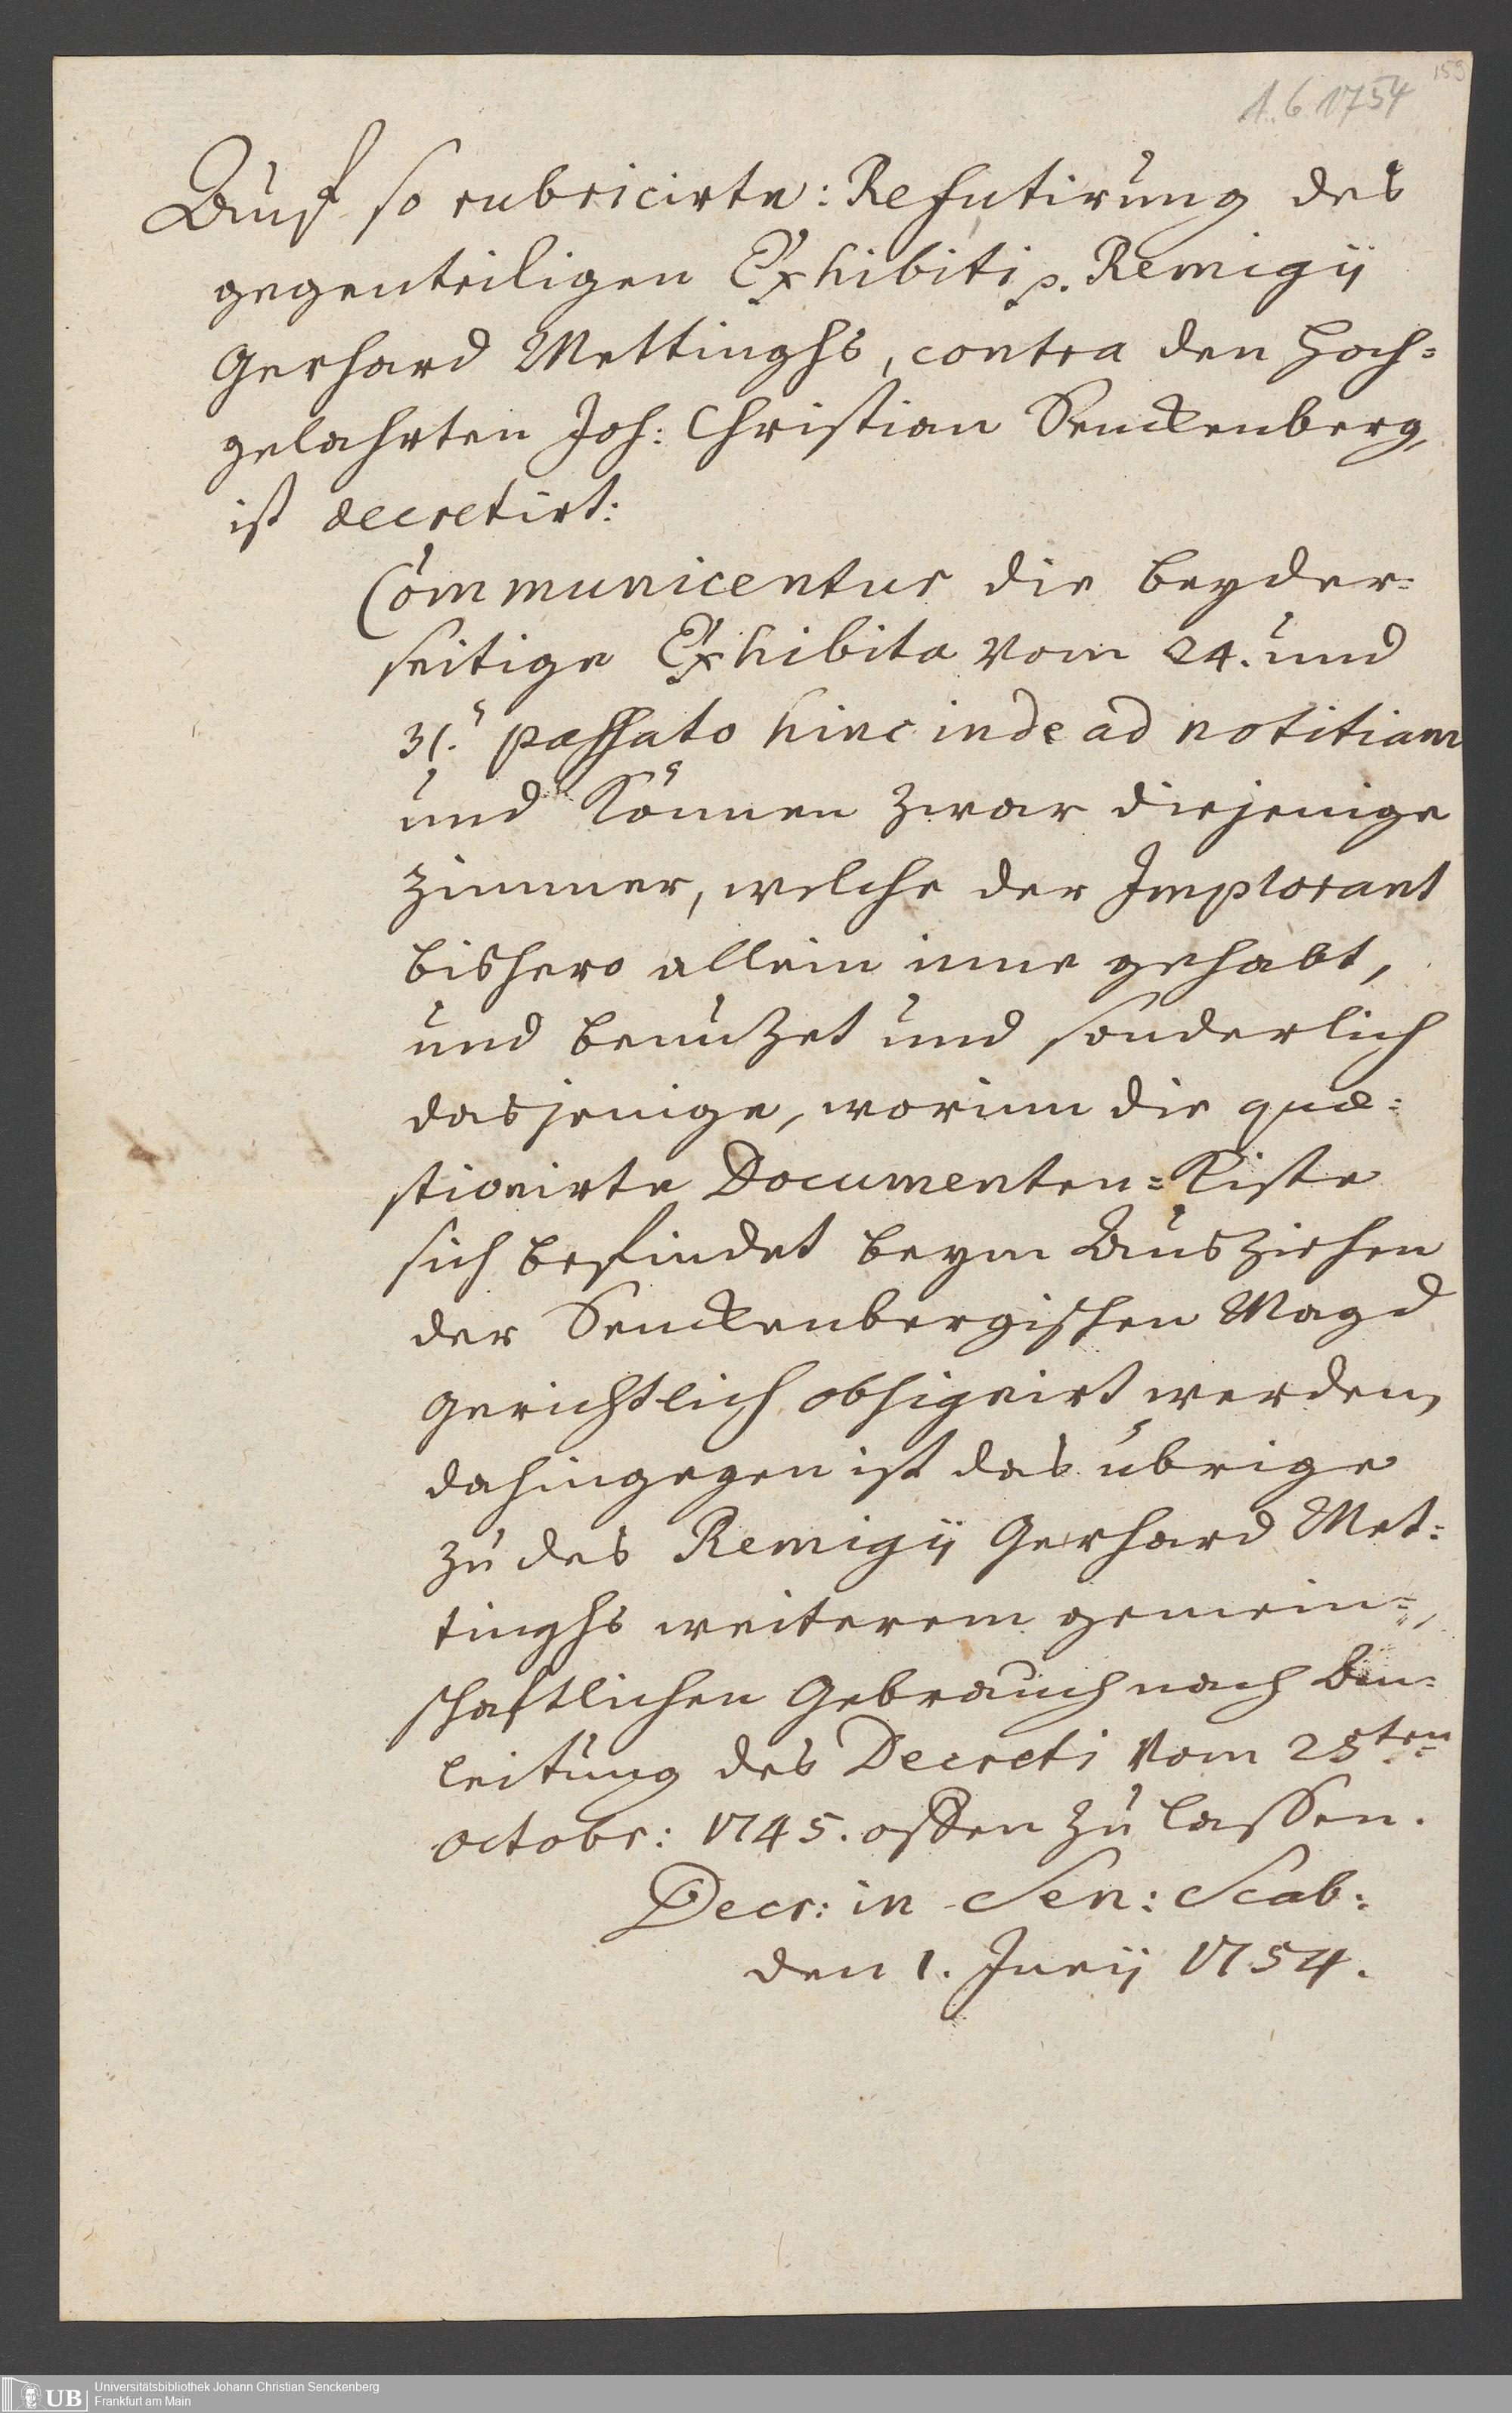 159
1. 6. 1754
Auf so rubricirte: Refutirung des
gegenteiligen Exhibiti p. Remigÿ
Gerhard Mettinghs, contra den Hoch=
gelahrten Joh: Christian Senckenberg,
ist decretirt:
Communicentur die beyder=
seitige Exhibita vom 24. und
31. passato hinc inde ad notitiam
und können zwar diejenige
Zimmer, welche der Implorant
bishero allein inne gehabt,
und benutzet und sonderlich
dasjenige, worinn die quæ=
stionirte Documenten=Kiste
sich befindet beym Ausziehen
der Senckenbergischen Magd
gerichtlich obsignirt werden,
dahingegen ist das übrige
zu des Remigÿ Gerhard Met=
tinghs weiterem gemein=
schaftlichen Gebrauch nach An=
leitung des Decreti vom 25ten
Octobr: 1745. offen zu lassen.
Decr: in Sen: Scab:
den 1. Junÿ 1754.
UB
Universitätsbibliothek Johann Christian Senckenberg
Frankfurt am Main